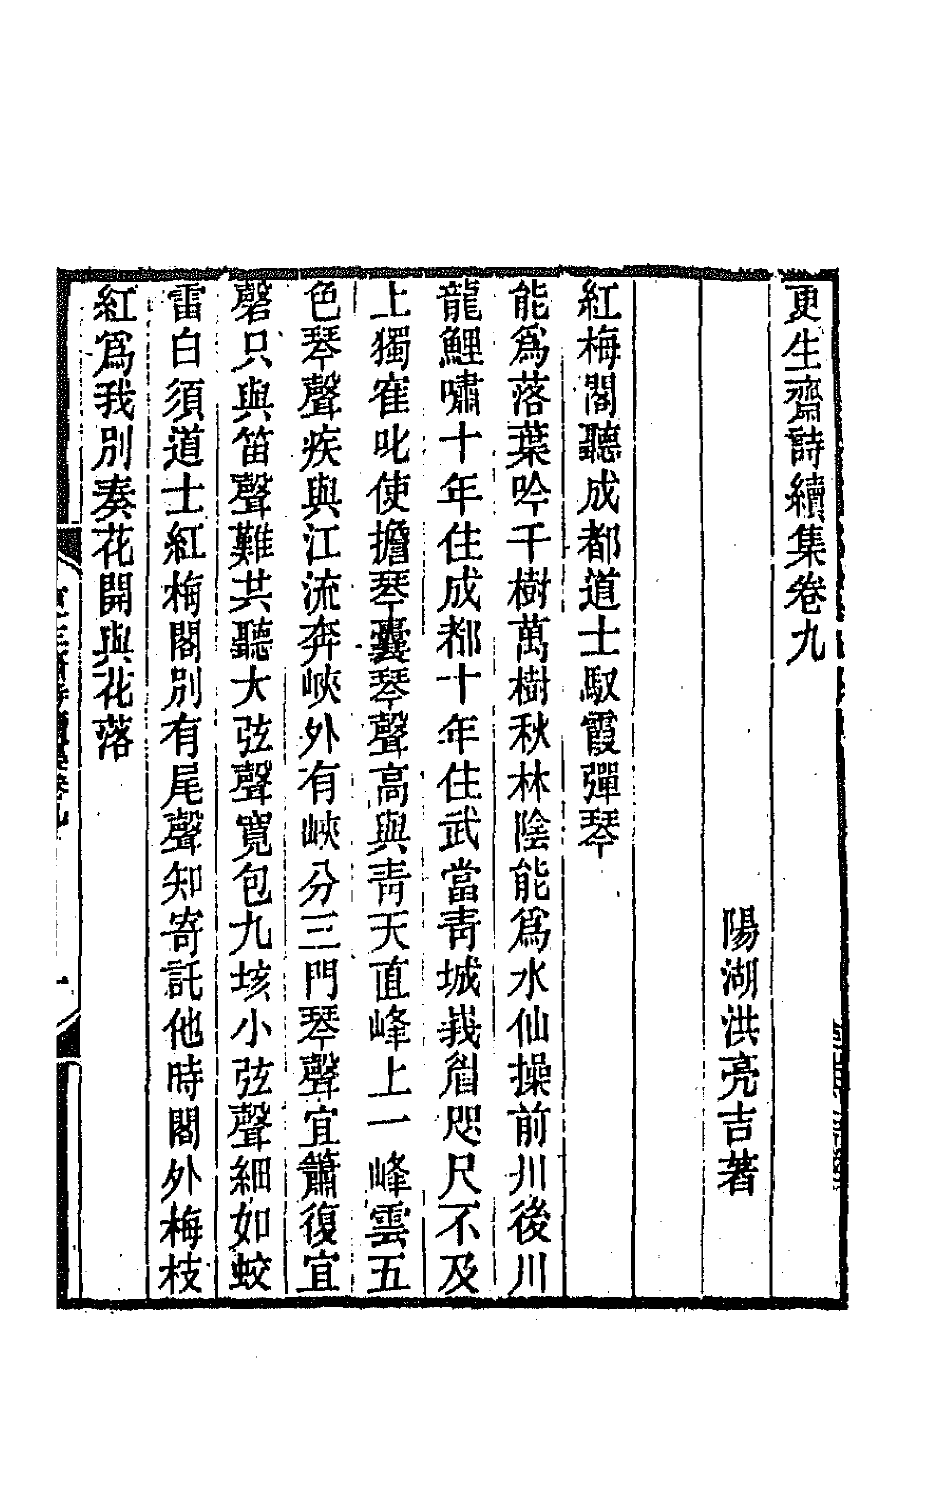 更生齋詩續集卷九
陽湖洪亮吉著
紅梅閣聽成都道士馭霞彈琴
能爲落葉吟千樹萬樹秋林陰能爲水仙操前川後川
龍鯉嘯十年住成都十年住武當青城峩眉咫尺不及
上獨隺叱使擔琴囊琴聲高與青天直峰上一峰雲五
色琴聲疾與江流奔峽外有峽分三門琴聲宜簫復宜
磬只與笛聲難共聽大弦聲寬包九垓小弦聲細如蛟
雷白須道士紅梅閣別有尾聲知寄託他時閣外梅枝
紅爲我別奏花開與花落
更生齋詩續集卷九
一